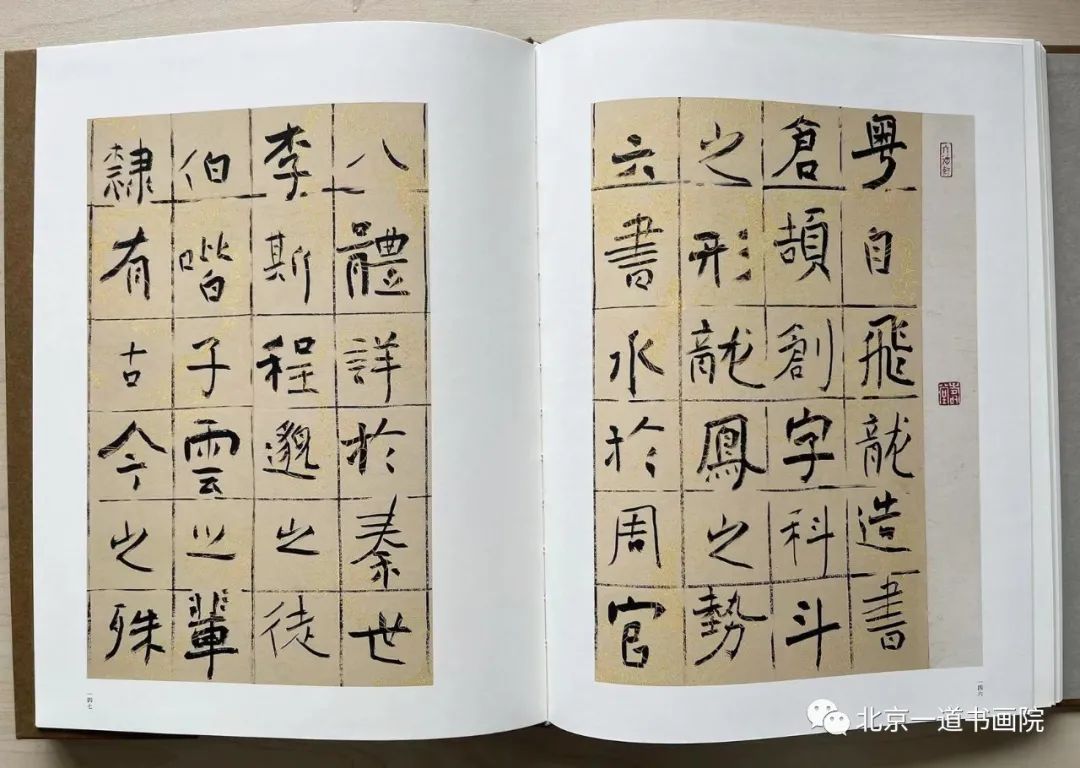 粤自飛龍造書
倉頡創字科斗
之形龍鳳之勢
六書水於周官
八體詳於秦世
李斯程邈之徒
伯喈子雲之輩
隸有古今之殊
一四六
一四七
北京一道书画院